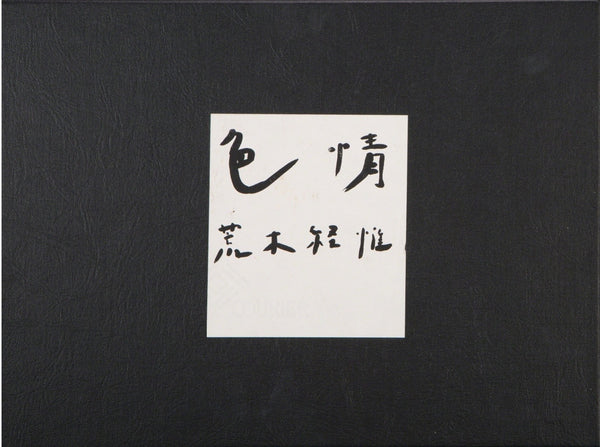 色情
荒木経惟